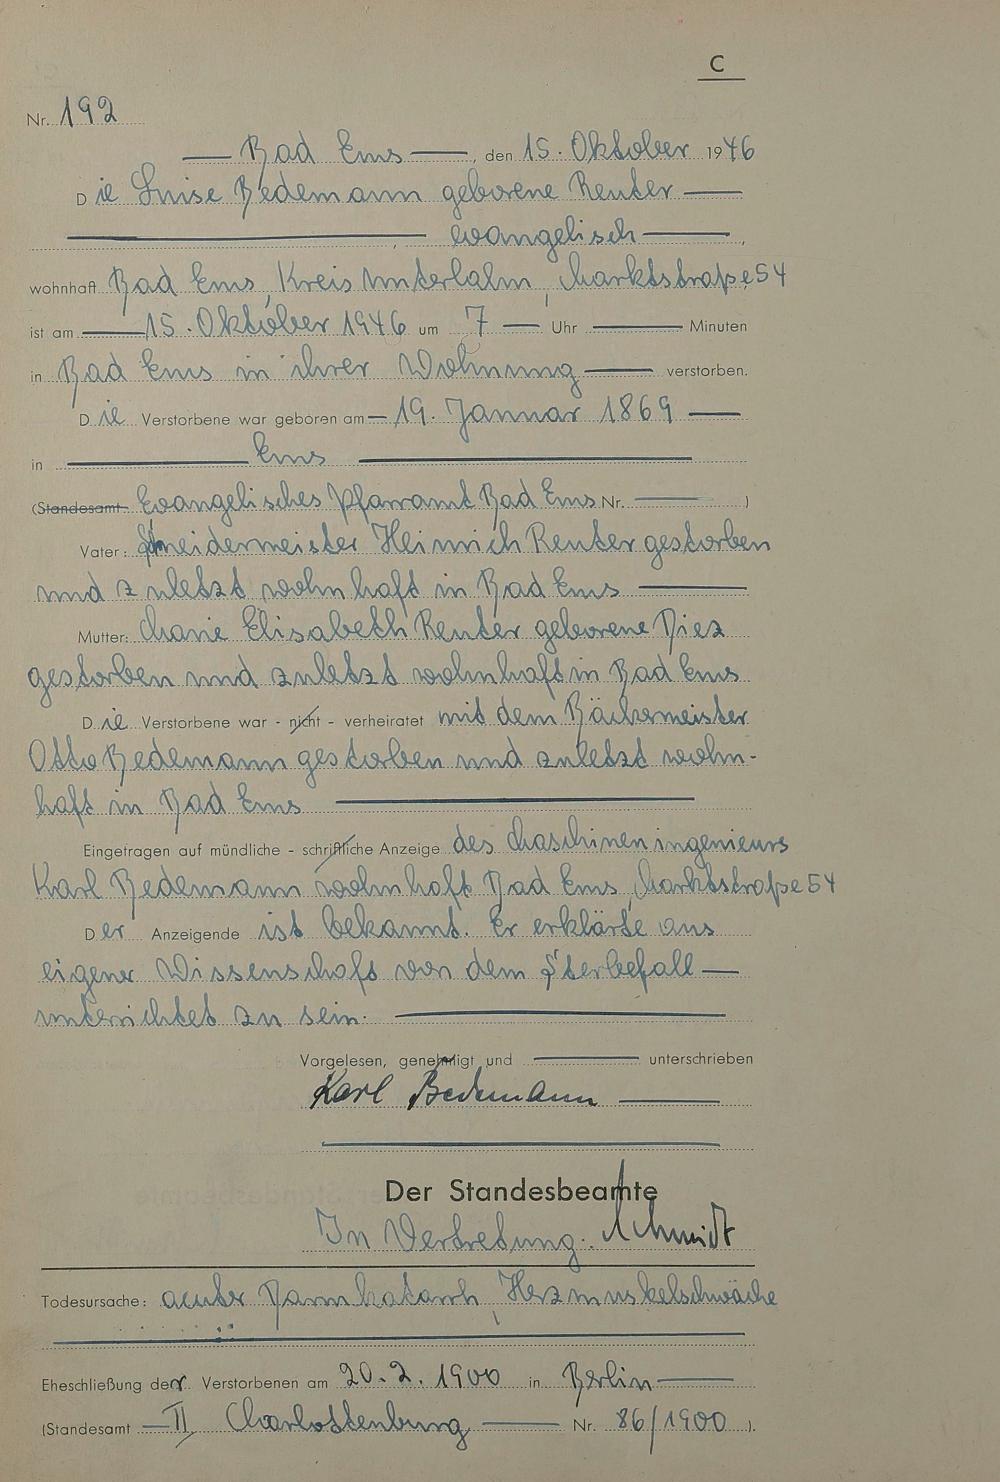 C
Nr. 192
Bad Ems, den 15. Oktober 1946
Die Luise Bedemann geborene Reuter
evangelisch,
wohnhaft Bad Ems, Kreis Unterlahn, Marktstraße 54
ist am 15. Oktober 1946 um 7 Uhr Minuten
in Bad Ems in ihrer Wohnung verstorben.
Die Verstorbene war geboren am 19. Januar 1869
in Ems
(Standesamt Evangelisches Pfarramt Bad Ems Nr. )
Vater: Schneidermeister Heinrich Reuter gestorben
und zuletzt wohnhaft in Bad Ems
Mutter: Marie Elisabeth Reuter geborene Diez
gestorben und zuletzt wohnhaft in Bad Ems
Die Verstorbene war - nicht - verheiratet mit dem Bäckermeister
Otto Bedemann gestorben und zuletzt wohn-
haft in Bad Ems
Eingetragen auf mündliche - schriftliche Anzeige des Maschineningenieurs
Karl Bedemann wohnhaft Bad Ems, Marktstraße 54
Der Anzeigende ist bekannt. Er erklärte aus
eigener Wissenschaft von dem Sterbefall
unterrichtet zu sein.
Vorgelesen, genehmigt und unterschrieben
Karl Bedemann
Der Standesbeamte
In Vertretung: Schmidt
Todesursache: acuter Darmkatarrh, Herzmuskelschwäche
Eheschließung der Verstorbenen am 20.2.1900 in Berlin
(Standesamt II Charlottenburg Nr. 86/1900 ).